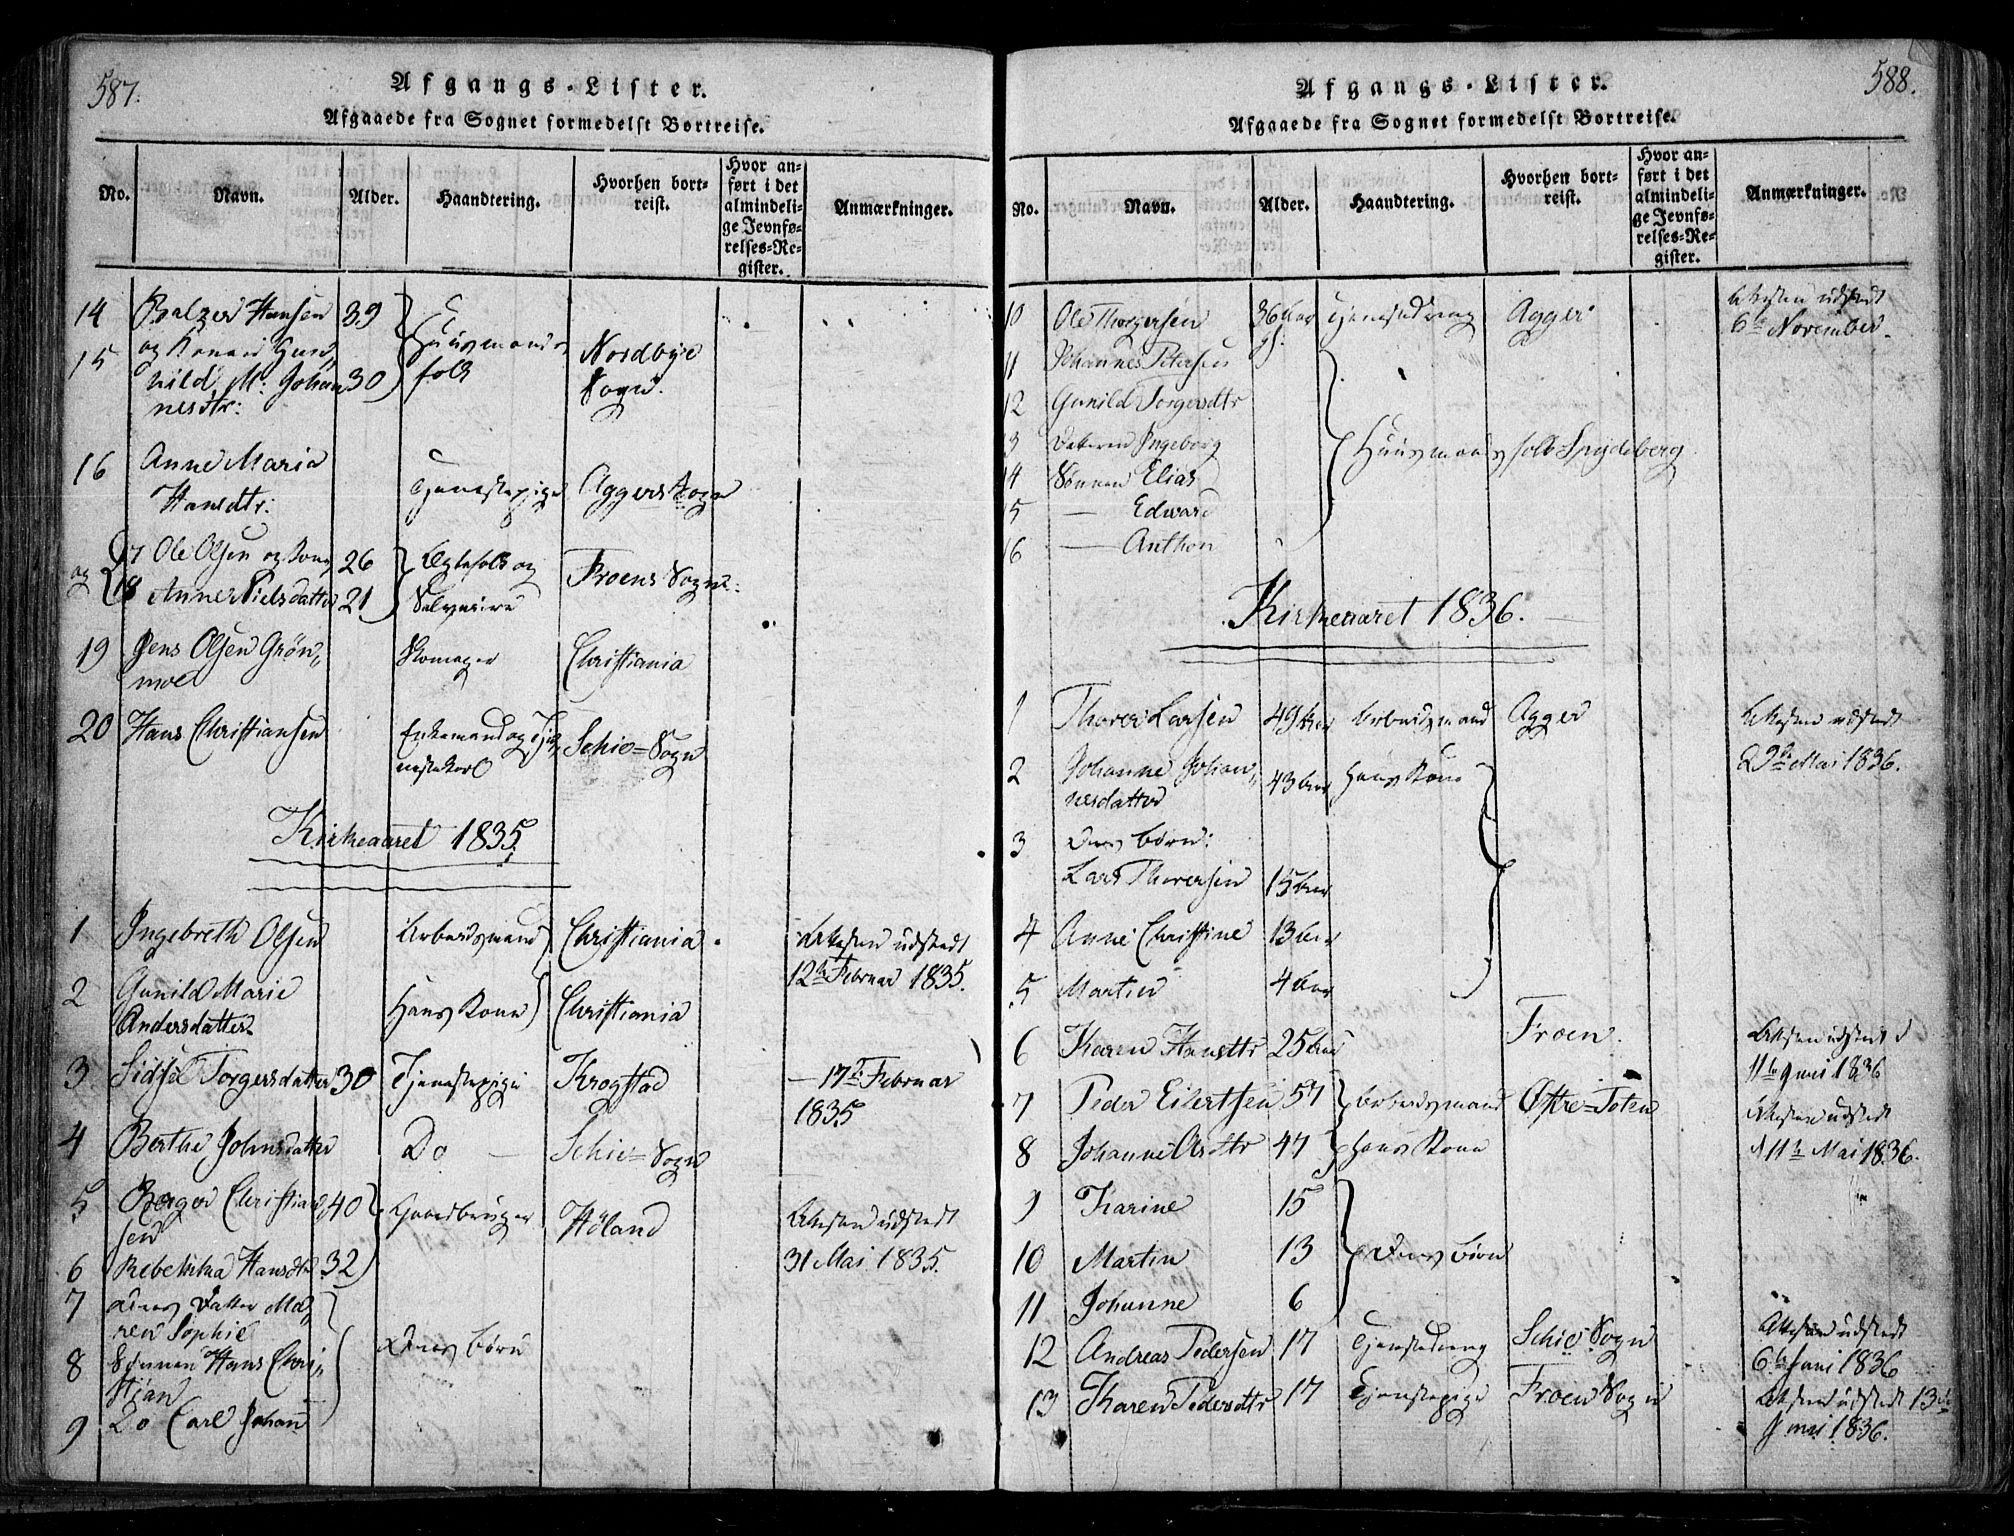 587.
Afgangs-Lister.
Afgaaede fra Sognet formedelst Bortreise.
No.
Navn.
Alder.
Haandtering.
Hvorhen bort-
reist.
Hvor an-
ført i det
almindeli-
ge Jevnfø-
relses-Re-
gister.
Anmærkninger.
14 Balzer Hansen 39 Huusmands
15 og Konen Gun, folk Nordbye
hild M: Johan 30 Sogn.
nesdtr:
16 Anne Maria
Hansdtr: Tjenestepige Aggers Sogn
17 Ole Olsen og Kone 26 Egtefolk og Froens Sogn.
og 18 Anne Nielsdatter 21 Selveiere
19 Jens Olsen Grøn,, Skomager Christiania
moe
20 Hans Christiansen Enkemand og Tje, Schie=Sogn
nestekarl
Kirkeaaret 1835.
1 Ingebreth Olsen Arbeidsmand Christiania. Attesten udstedt
12te Februar 1835.
2 Gunild Marie Hans Kone Christiania
Andersdatter
3 Sidsel Torgersdatter 30 Tjenestepige Krogstad — 17de Februar
1835
4 Berthe Johnsdatter Do — Schie=Sogn
5 Berger Christian, 40 Gaardbruger Höland Attesten udstedt
sen
6 Rebekka Hansdtr 32 31 Mai 1835.
7 Deres Datter Ma,
ren Sophie Deres Børn
8 Sønnen Hans Chri,,
stian
9 Do Carl Johan
588.
Afgangs-Lister.
Afgaaede fra Sognet formedelst Bortreise.
No.
Navn.
Alder.
Haandtering.
Hvorhen bort-
reist.
Hvor an-
ført i det
almindeli-
ge Jevnfø-
relses-Re-
gister.
Anmærkninger.
10 Ole Thorgersen 36 Aar Tjenestedreng Agger Attesten udstedt
6te November.
11 Johannes Petersen
12 Gunild Torgersdtr
13 Datteren Ingeborg Huusmandsfolk Spydeberg
14 Sønnen Elias
15 — Edward
16 — Anthon
Kirkeaaret 1836.
1 Thorer Larsen 49 Aar Arbeidsmand Agger Attesten udstedt
2 Johanne Johan,, 43 Aar Hans Kone Mai 1836.
nesdatter
3 Deres Børn:
Lars Thorersen 15 Aar
4 Anne Christine 13 Aar
5 Martin 4 Aar
6 Karen Hansdtr 25 Aar Froen. Attesten udstedt d
11te Juni 1836
7 Peder Eilertsen 57 Arbeidsmand Østre=Toten Attesten udstedt
8 Johanne Olsdtr 47 Hans Kone d 11te Mai 1836.
9 Karine 15
10 Martin 13 Deres Børn
11 Johanne 6
12 Andreas Pedersen 17 Tjenestedreng Schie Sogn Attesten udstedt
6te Juni 1836
13 Karen Pedersdtr 17 Tjenestepige Froen Sogn Attesten udstedt 13de
Juni 1836.